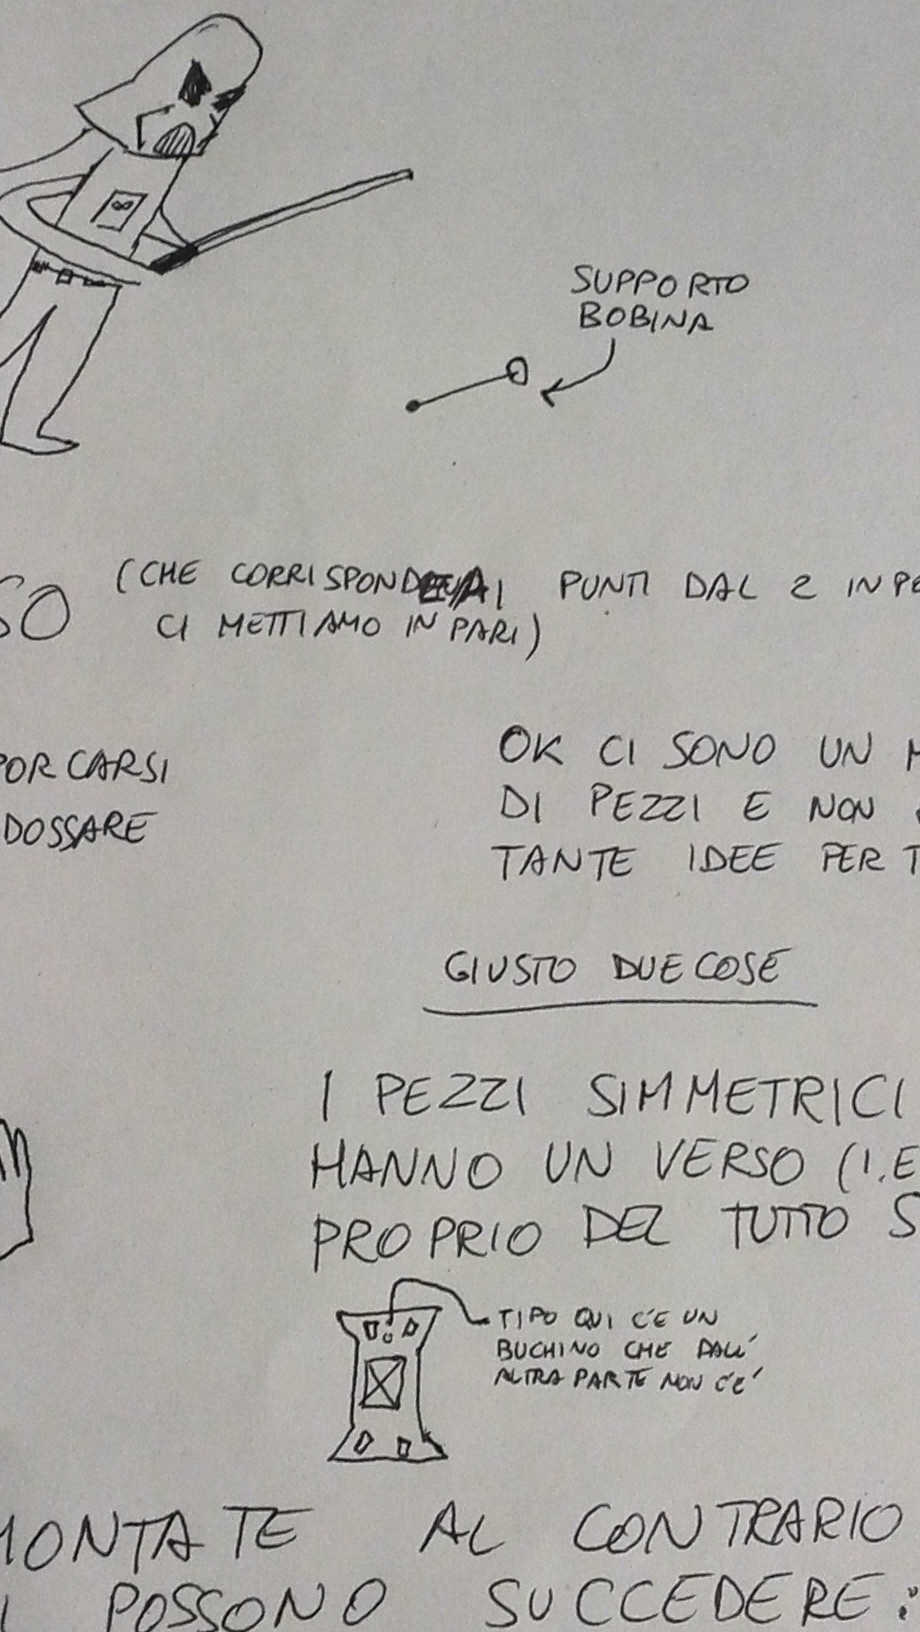 SUPPORTO
BOBINA
SO (CHE CORRISPONDE AI PUNTI DAL 2 IN PE
CI METTIAMO IN PARI)
PORCARSI
DOSSARE
OK CI SONO UN M
DI PEZZI E NON
TANTE IDEE PER T
GIUSTO DUE COSE
I PEZZI SIMMETRICI
HANNO UN VERSO (I.E
PROPRIO DEL TUTTO S
TIPO QUI C'È UN
BUCHINO CHE DALL'
ALTRA PARTE NON C'È
MONTATE AL CONTRARIO
I POSSONO SUCCEDERE: